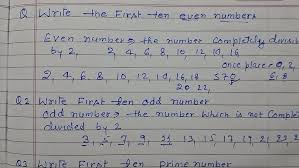 Q Write the First ten even numbers
Even number → the number Completely divisible
by 2, 2, 4, 6, 8, 10, 12, 10, 16
once place = 0, 2,
2, 4, 6, 8, 10, 12, 14, 16, 18 6, 8
20 22,
Q2 Write First ten odd number
Odd number → the number which is not Comple
divided by 2
3, 5, 7, 9, 11, 13, 15, 17, 19, 21
Q3 Write First ten Prime number